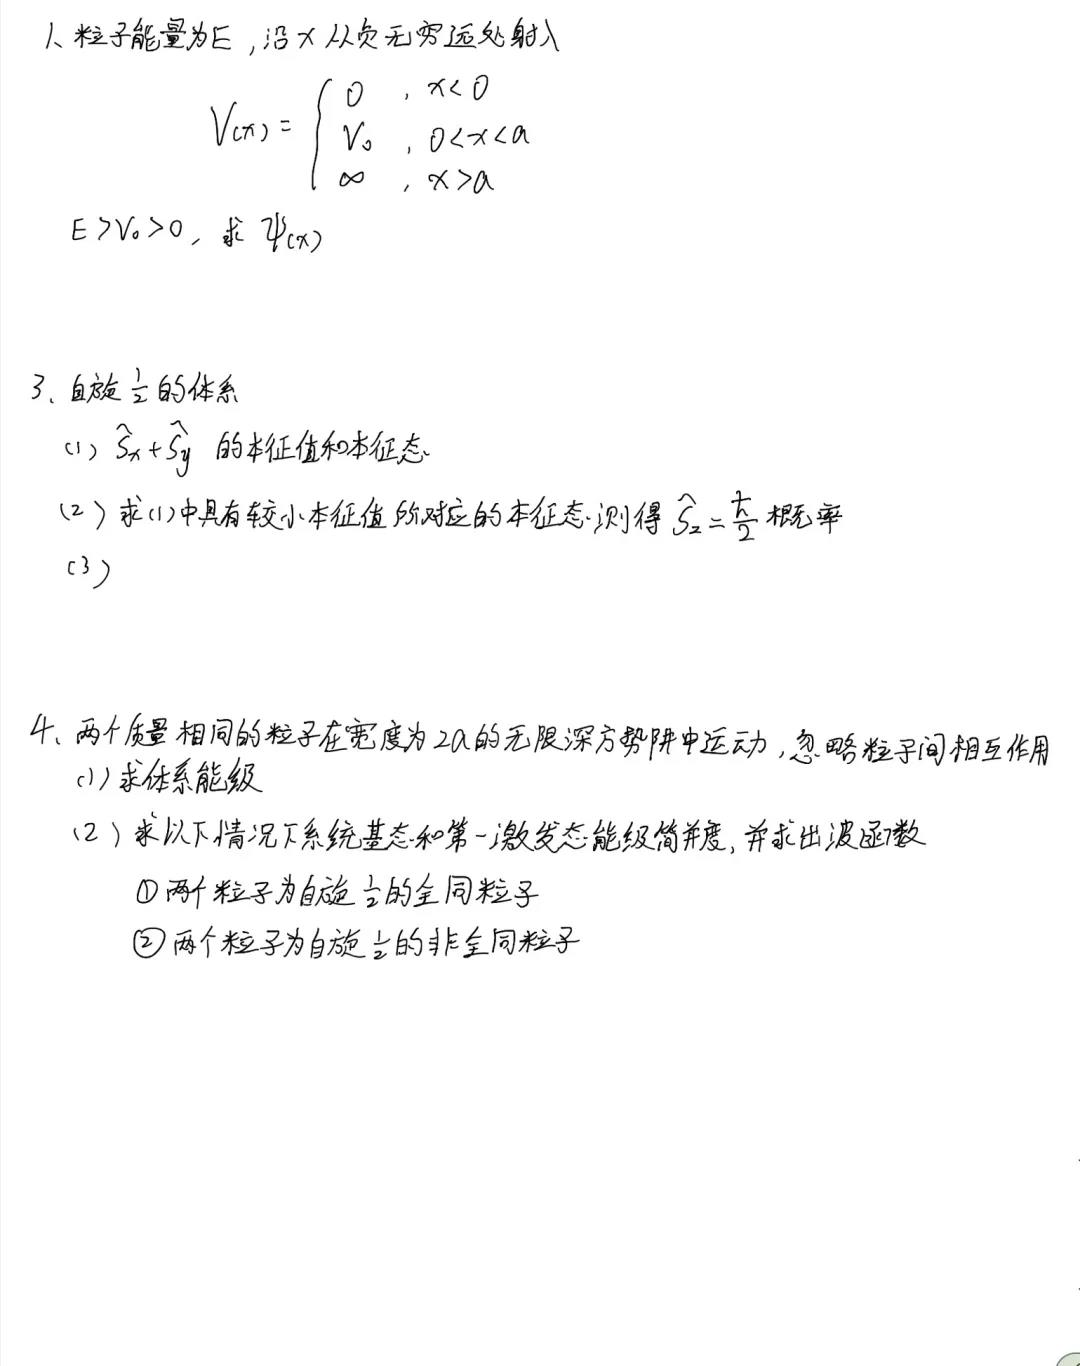 1、粒子能量为E，沿x从负无穷远处射入
V(x) = { 0 , x<0
V₀ , 0<x<a
∞ , x>a
E>V₀>0，求 ψ(x)
3、自旋1/2的体系
(1) Ŝx+Ŝy 的本征值和本征态.
(2) 求(1)中具有较小本征值所对应的本征态.测得 Ŝz=ħ/2 概率
(3)
4、两个质量相同的粒子在宽度为2a的无限深方势阱中运动，忽略粒子间相互作用
(1) 求体系能级
(2) 求以下情况下系统基态和第一激发态能级简并度，并求出波函数
① 两个粒子为自旋1/2的全同粒子
② 两个粒子为自旋1/2的非全同粒子